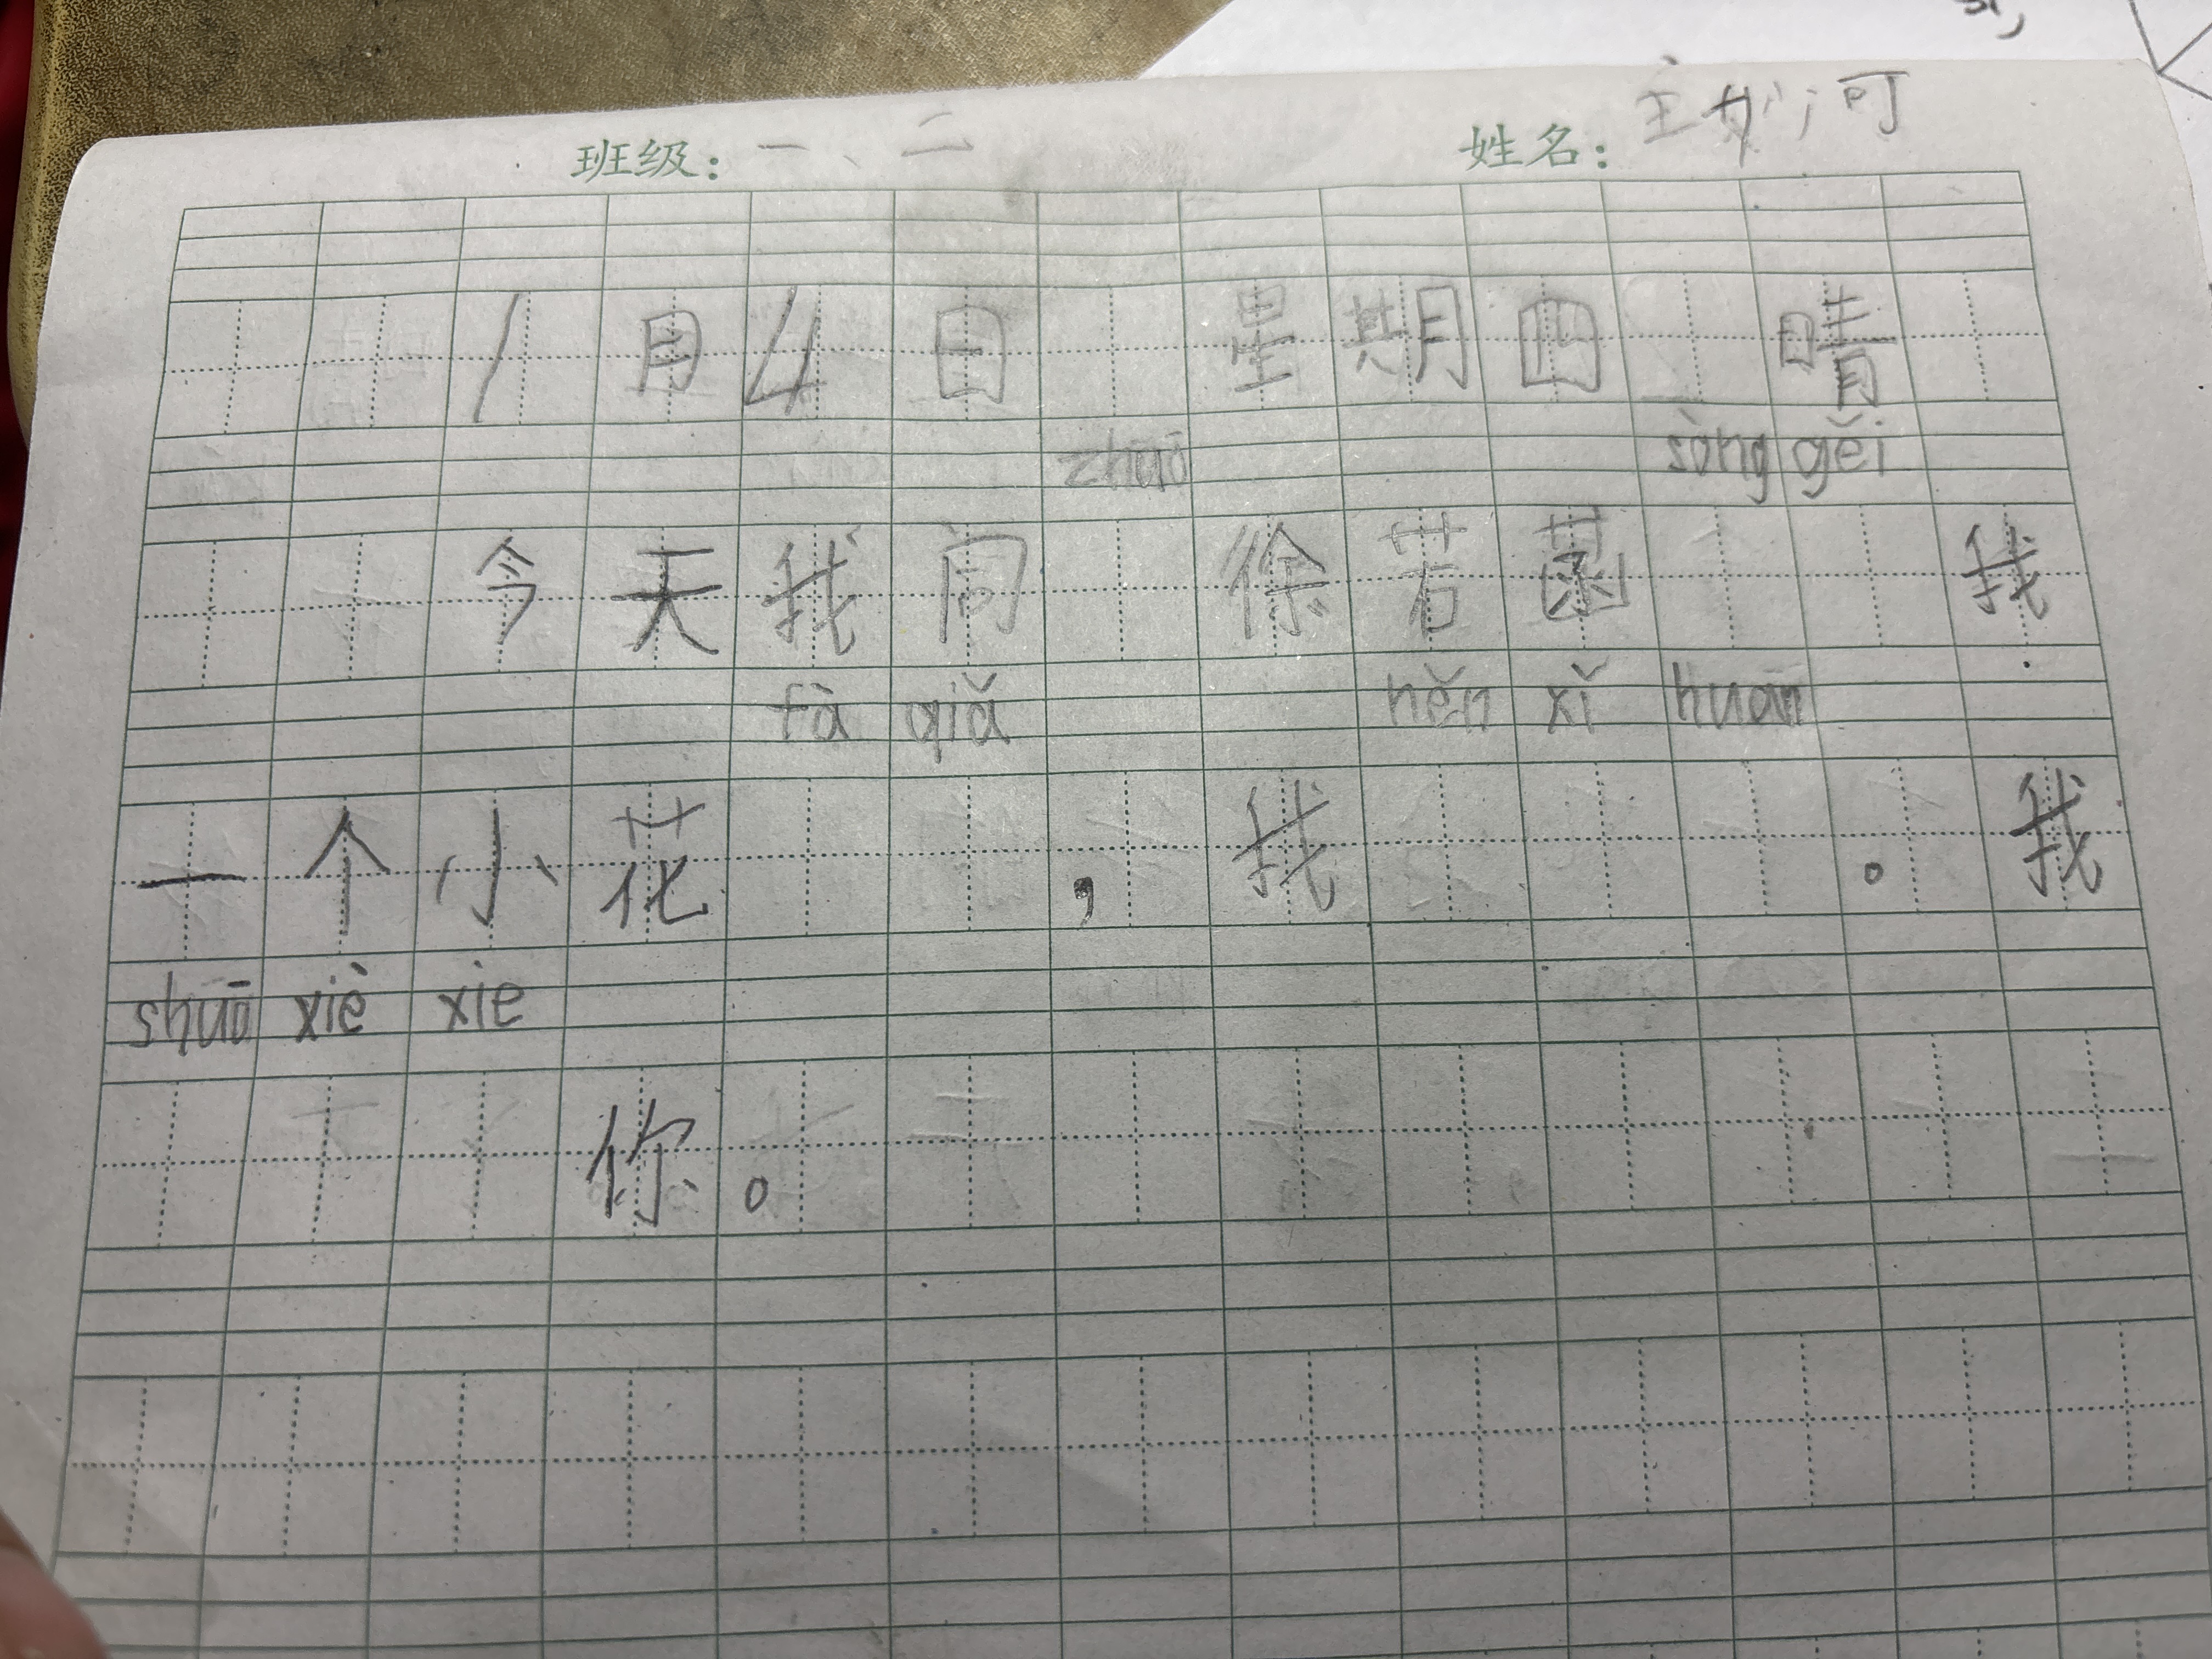 班级：一、二 姓名：主妙河
1月4日 星期四 晴
zhuō sòng gěi
今天我问 徐若菡 我
fà qiǎ hěn xǐ huān
一个小花 ，我 。我
shuō xiè xie
你。